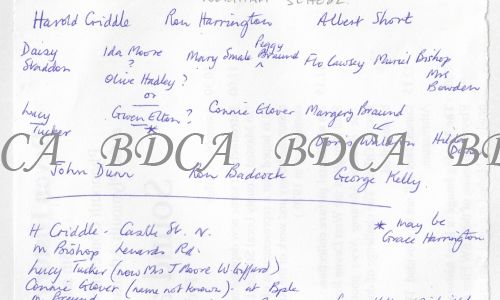 SCHOOL.
Harold Criddle Ron Harrington Albert Short
Daisy Staddon Ida Moore ? Mary Smale Peggy Braund Flo Causey Muriel Bishop Mrs Bowden
Olive Hadley ?
or
Lucy Tucker Gwen Elton ? * Connie Glover Margery Braund
BDCA BDCA BDCA
John Dunn Ron Badcock George Kelly.
H Criddle - Castle St. N. * may be
M Bishop Lenards Rd. Grace Harrington
Lucy Tucker (now Mrs J Moore W Gifford)
Connie Glover (name not known) - at